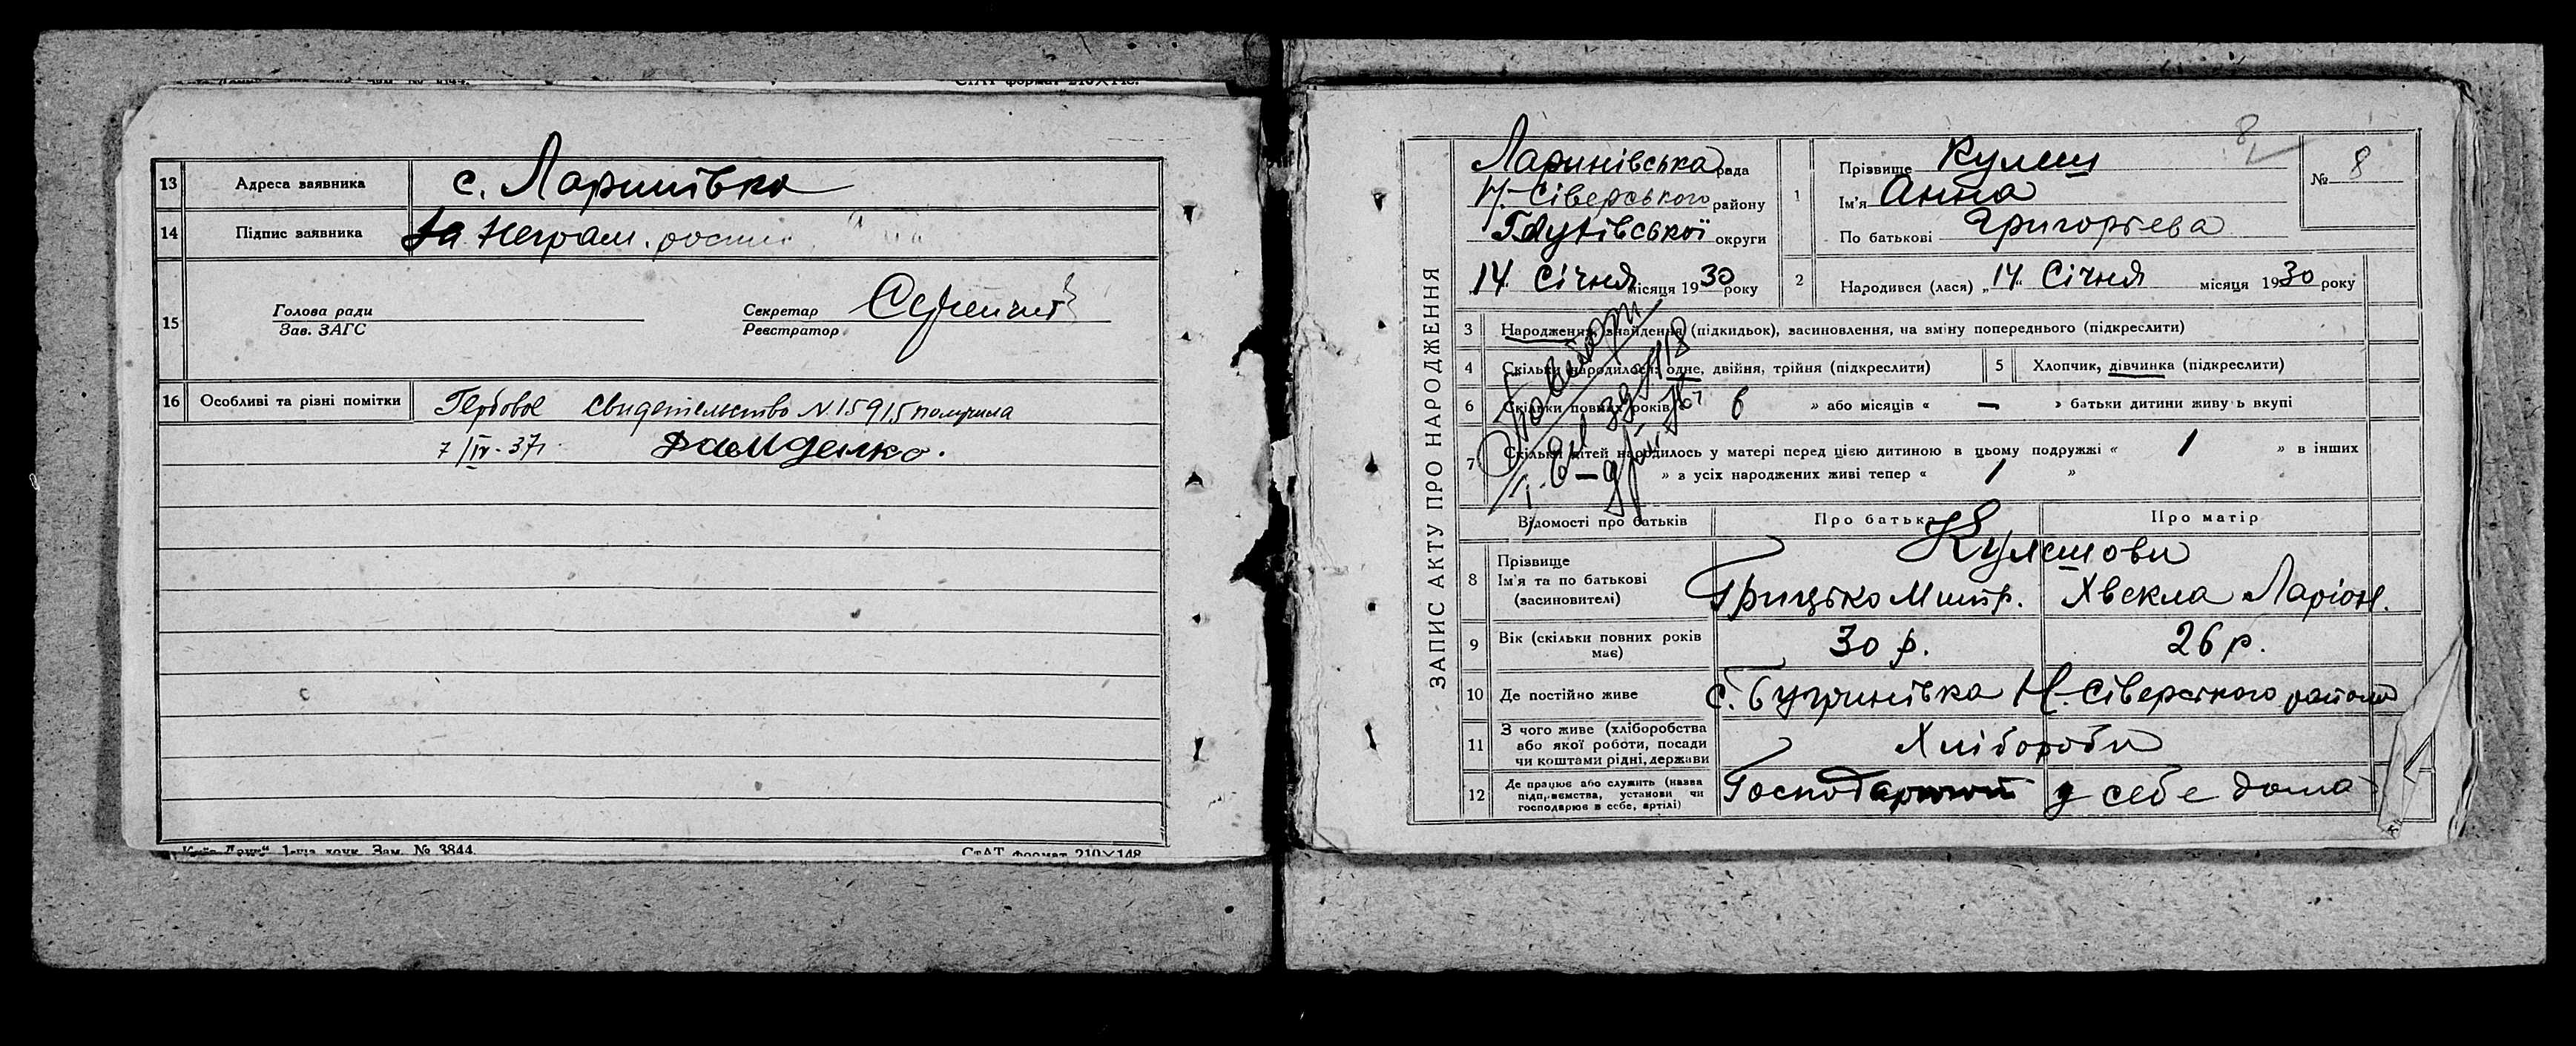 СтАТ формат 210×148.
13 Адреса заявника с. Ларинівка
14 Підпис заявника За неграм. роспис.
15 Голова ради
Зав. ЗАГС
Секретар
Реєстратор
16 Особливі та різні помітки Гербовое свидетельство N 15915 получила
7/IV-37г.
Київ-Друк" Зам. № 3844.
СтАТ формат 210×148
ЗАПИС АКТУ ПРО НАРОДЖЕННЯ
Ларинівська рада
Н.-Сіверського району
Глухівської округи
„14" Січня місяця 1930 року
1 Прізвище Кулеш
Ім'я Анна
По батькові Григорьєва
8
№ 8
2 Народився (лася) „14" Січня місяця 1930 року
3 Народження, знайдення (підкидьок), засиновлення, на зміну попереднього (підкреслити)
4 Скільки народилося: одне, двійня, трійня (підкреслити)
5 Хлопчик, дівчинка (підкреслити)
6 Скільки повних років 6 » або місяців « — » батьки дитини живуть вкупі
7 Скільки дітей народилось у матері перед цією дитиною в цьому подружжі « 1 » в інших
» з усіх народжених живі тепер « 1 »
Відомості про батьків Про батька Про матір
8 Прізвище
Ім'я та по батькові
(засиновителі)
Кулешови
Грицько Митр. Хвекла Ларіон.
9 Вік (скільки повних років має) 30 р. 26 р.
10 Де постійно живе с. Бугринівка Н.-Сіверського району
11 З чого живе (хліборобства
або якої роботи, посади
чи коштами рідні, держави
Хлібороби
12 Де працює або служить (назва
підприємства, установи чи
господарює в себе, артілі)
у себе дома